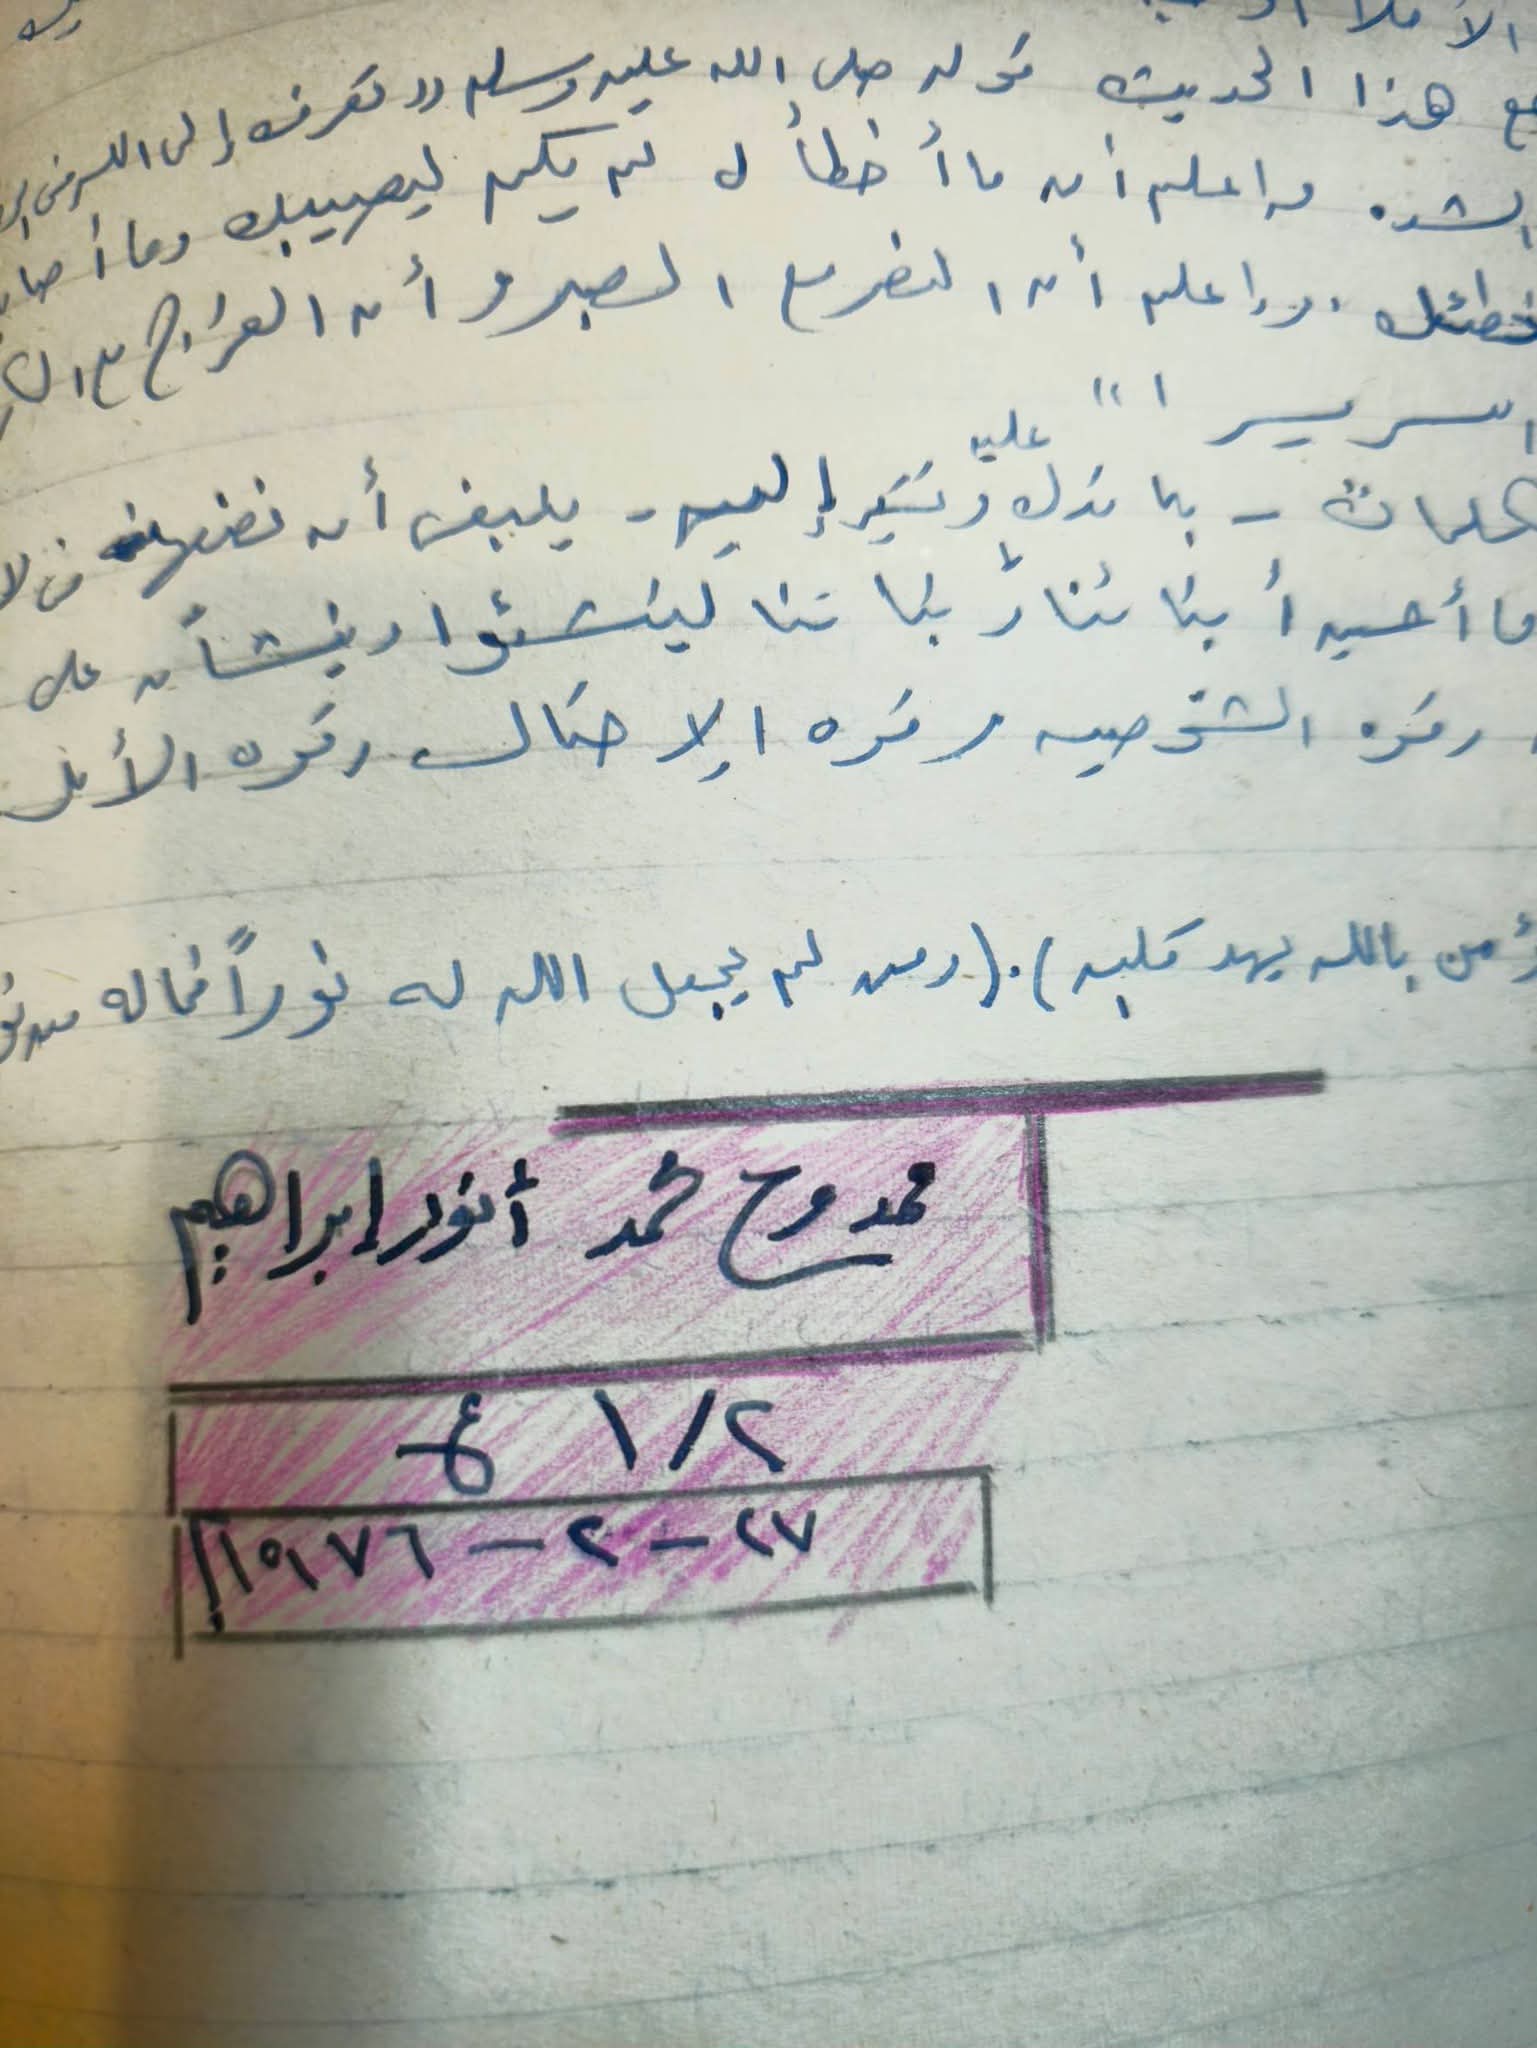 مع هذا الحديث قوله صلى الله عليه وسلم «تعرف إلى الله فى
الشدة. واعلم أن ما أخطأك لم يكن ليصيبك وما أصا
. واعلم أن النصر مع الصبر وأن الفرج مع
العسر يسرا"
عليه
الكلمات - بما تدل وتشير إليه - ينبغى أن نضعها
وما أحسب أبناءنا وبناتنا لينشئوا وينشأن على
وقوه الشخصيه وقوه الإحتمال وقوه الأمل
يؤمن بالله يهد قلبه). (ومن لم يجعل الله له نوراً فما له من نو
ممدوح محمد أنور إبراهيم
١/٢ ع
٢٧ - ٢ - ١٩٧٦